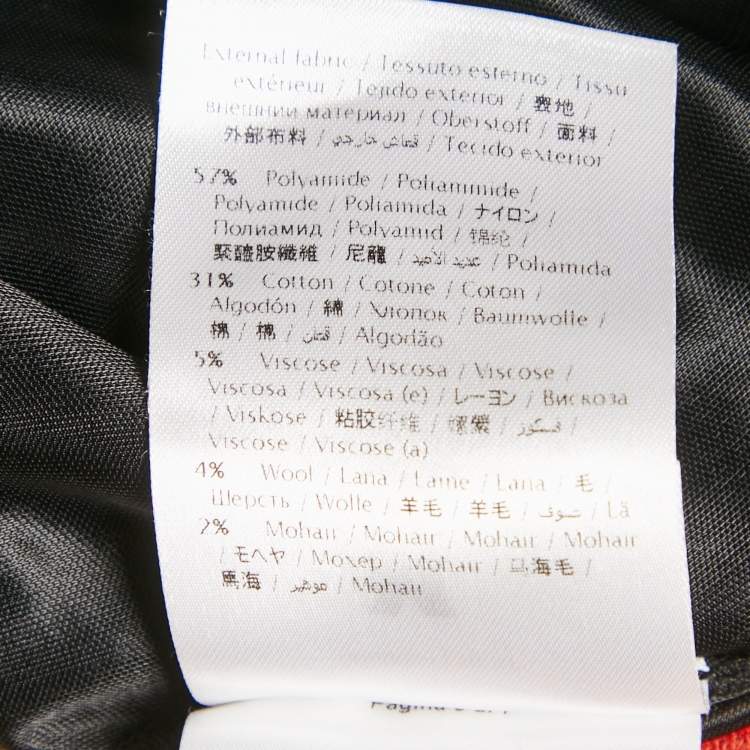 External fabric / Tessuto esterno / Tissu
extérieur / Tejido exterior / 表地 /
внешний материал / Oberstoff / 面料 /
外部布料 / قماش خارجي / Tecido exterior
57% Polyamide / Poliammide /
Polyamide / Poliamida / ナイロン /
Полиамид / Polyamid / 锦纶 /
聚醯胺纖維 / 尼龍 / عديد الأميد / Poliamida
31% Cotton / Cotone / Coton /
Algodón / 綿 / Хлопок / Baumwolle /
棉 / 棉 / قطن / Algodão
5% Viscose / Viscosa / Viscose /
Viscosa / Viscosa (e) / レーヨン / Вискоза
/ Viskose / 粘胶纤维 / 嫘縈 / فسكوز /
Viscose / Viscose (a)
4% Wool / Lana / Laine / Lana / 毛 /
Шерсть / Wolle / 羊毛 / 羊毛 / صوف / Lã
2% Mohair / Mohair / Mohair / Mohair
/ モヘヤ / Мохер / Mohair / 马海毛 /
馬海 / موهير / Mohair
Pagina